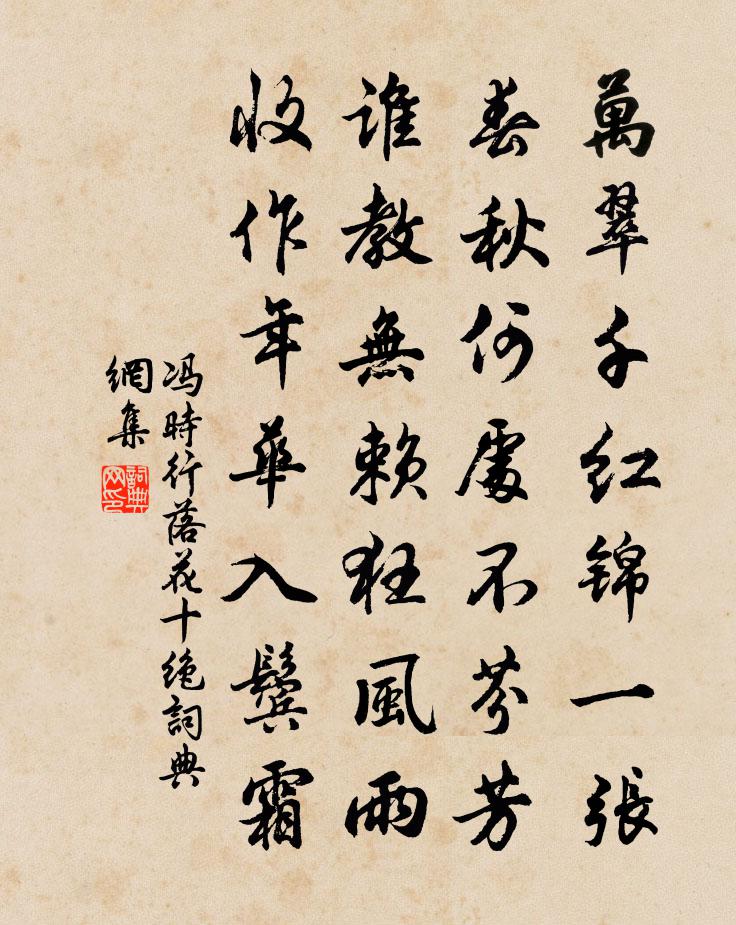 萬翠千红錦一張
春秋何處不芬芳
誰教無賴狂風雨
收作年華入鬓霜
冯時行落花十绝詞典
網集
詞典网印